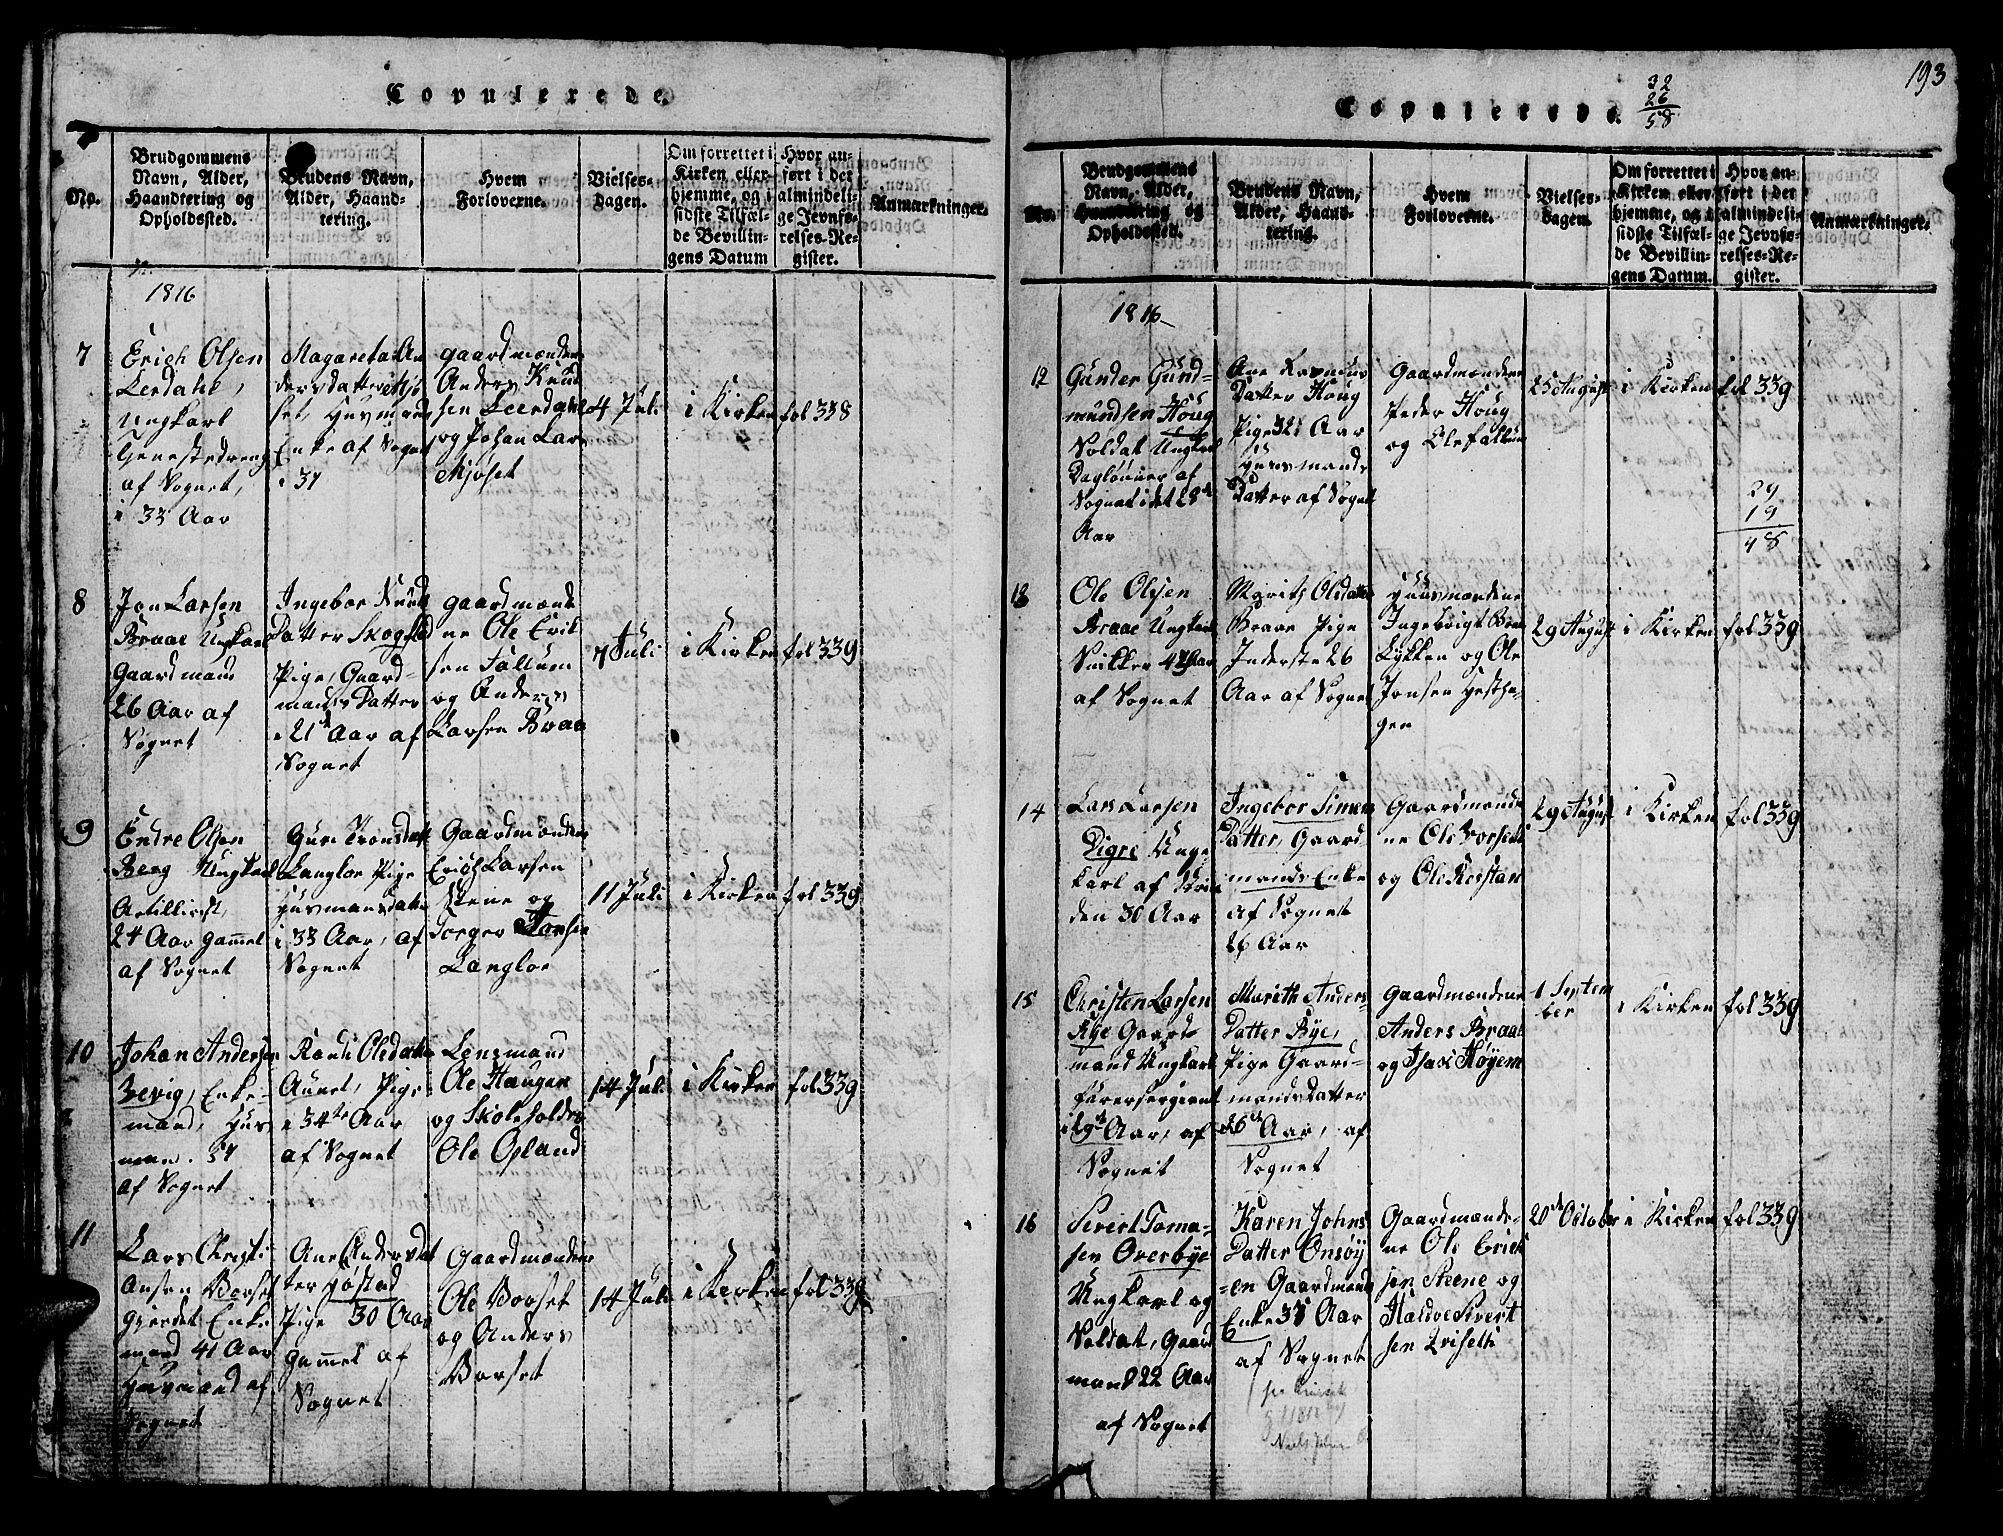 Copulerede.
No.
Brudgommens
Navn, Alder,
Haandtering og
Opholdssted.
Brudens Navn,
Alder, Haand-
tering.
Hvem
Forloverne.
Vielses-
Dagen.
Om forrettet i
Kirken eller
hjemme, og i
sidste Tilfæl-
de Bevillin-
gens Datum
Hvor an-
ført i det
almindeli-
ge Jevnfø-
relses-Re-
gister.
Anmærkninger.
1816
7
Erich Olsen
Lerdahl,
Ungkarl
Tjenestedreng
af Sognet,
i 33 Aar
Magareta An
dersdatter Mjø
set, Huusmands
Enke af Sognet
37
Gaardmændene
Anders Knud
sen Leerdahl
og Johan Lar
Mjøset
4 Juli
i Kirken
fol 338
8
Jon Larsen
Braae Ungkarl
Gaardmand
26 Aar af
Sognet
Ingebor Knud
Datter Skogstad
Pige, Gaard-
mands Datter
21 Aar af
Sognet
Gaardmænde
ne Ole Erik
sen Fallum
og Anders
Larsen Braa
7 Juli
i Kirken
fol 339
9
Endre Olsen
Berg Ungkarl
Artillerist,
24 Aar gammel
af Sognet
Guru Tronsdatt
Langloe Pige
Huusmansdatter
i 33 Aar, af
Sognet
Gaardmændene
Erich Larsen
Stene og
Torger
Langloe
11 Juli
i Kirken
fol 339
10
Johan Andersen
Bevig, Enke-
mand, Huus
man. 37
af Sognet
Randi Olsdatter
Aunet, Pige
34te Aar
af Sognet
Lensmand
Ole Haugen
og Skoleholder
Ole Opland
14 Juli
i Kirken
fol 339
11
Lars Christi
Ansen Borset
Gjerdet Enke
mand 41 Aar
Huusmand af
Sognet
Ane Andersdat
ter Høstad
Pige 30 Aar
Gammel af
Sognet
Gaardmændene
Ole Borset
og Anders
Borset
14 Juli
i Kirken
fol 339
Copulerede.
32
26
58
193
No.
Brudgommens
Navn, Alder,
Haandtering og
Opholdssted.
Brudens Navn,
Alder, Haand-
tering.
Hvem
Forloverne.
Vielses-
Dagen.
Om forrettet i
Kirken eller
hjemme, og i
sidste Tilfæl-
de Bevillin-
gens Datum.
Hvor an-
ført i det
almindeli-
ge Jevnfø-
relses-Re-
gister.
Anmærkninger.
1816
12
Gunder Gund-
mundsen Houg
Soldat Ungkarl
Daglønner af
Sognet i det 28de
Aar
Ane Rasmus
Datter Houg
Pige 32 Aar
Huusmands
Datter af Sognet
Gaardmændene
Peder Houg
og Ole Fallum
25 August
i Kirken
fol 339
29
19
48
13
Ole Olsen
Braae Ungkarl
Snikker 47 Aar
af Sognet
Marith Olsdatter
Braae Pige
Inderste 26
Aar af Sognet
Huusmændene
Ingebrigt Bræ
Lykken og Ole
Jonsen Hestha-
gen
29 August
i Kirken
fol 339
14
Lars Larsen
Digre Ung-
karl af
den 30 Aar
Ingebor Simen
Datter, Gaard-
mands Enke
af Sognet
26 Aar
Gaardmænde
ne Ole
og Ole
29 August
i Kirken
fol 339
15
Christen Larsen
Rye Gaard-
mand Ungkarl
furersergeant
i 29de Aar, af
Sognet
Marith Anders-
Datter Bye,
Pige Gaard-
mandsdatter
26de Aar, af
Sognet
Gaardmændene
Anders Braae
og Isak Høyem
1 Septem
ber
i Kirken
fol 339
16
Sivert Toma-
sen Overbye
Ungkarl og
Soldat, Gaard
mand 22 Aar
af Sognet
Karen Johns
Datter Onsøy-
en Gaardmands
Enke 33 Aar
af Sognet
Gaardmænde-
ne Ole Erich
sen Steene og
Haldo Sivert
sen Qviseth
20de October
i Kirken
fol 339